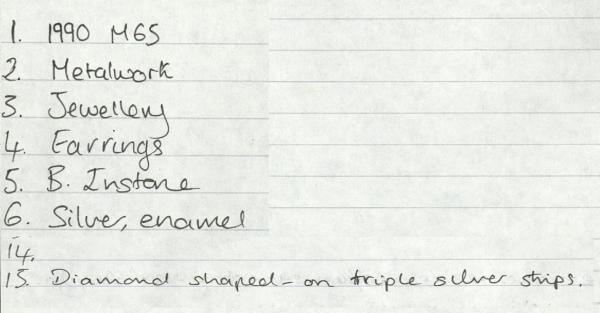 1. 1990 MGS
2. Metalwork
3. Jewellery
4. Earrings
5. B. Instone
6. Silver, enamel
14.
15. Diamond shaped - on triple silver strips.